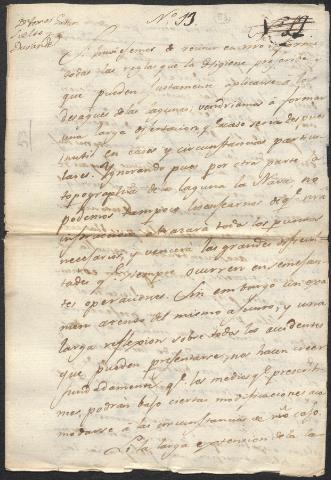 Nº 13
Si huviesemos de reunir en nro informe
todas las reglas que la Higiene prescribe, y
que pueden justamente aplicarse à los
desagues de las lagunas, vendriamos à formar
una larga disertacion, q.e acaso seria despues
inutil en casos y circunstancias particu
lares. Ignorando pues por otra parte la
topographia de la laguna la Nava, no
podemos tampoco lisongearnos de q.e nra
instruccion abrazarà todos los puntos
necesarios, y vencerà las grandes dificul
tades q.e siempre ocurren en semejan
tes operaciones. Sin embargo un exa
men atento del mismo asunto, y una
larga reflexion sobre todos los accidentes
que pueden presentarse, nos hacen creer
fundadamente q.e los medios q.e prescribi
mos, podran bajo ciertas modificaciones aco
modarse à las circunstancias de nro caso.
La larga extension de la